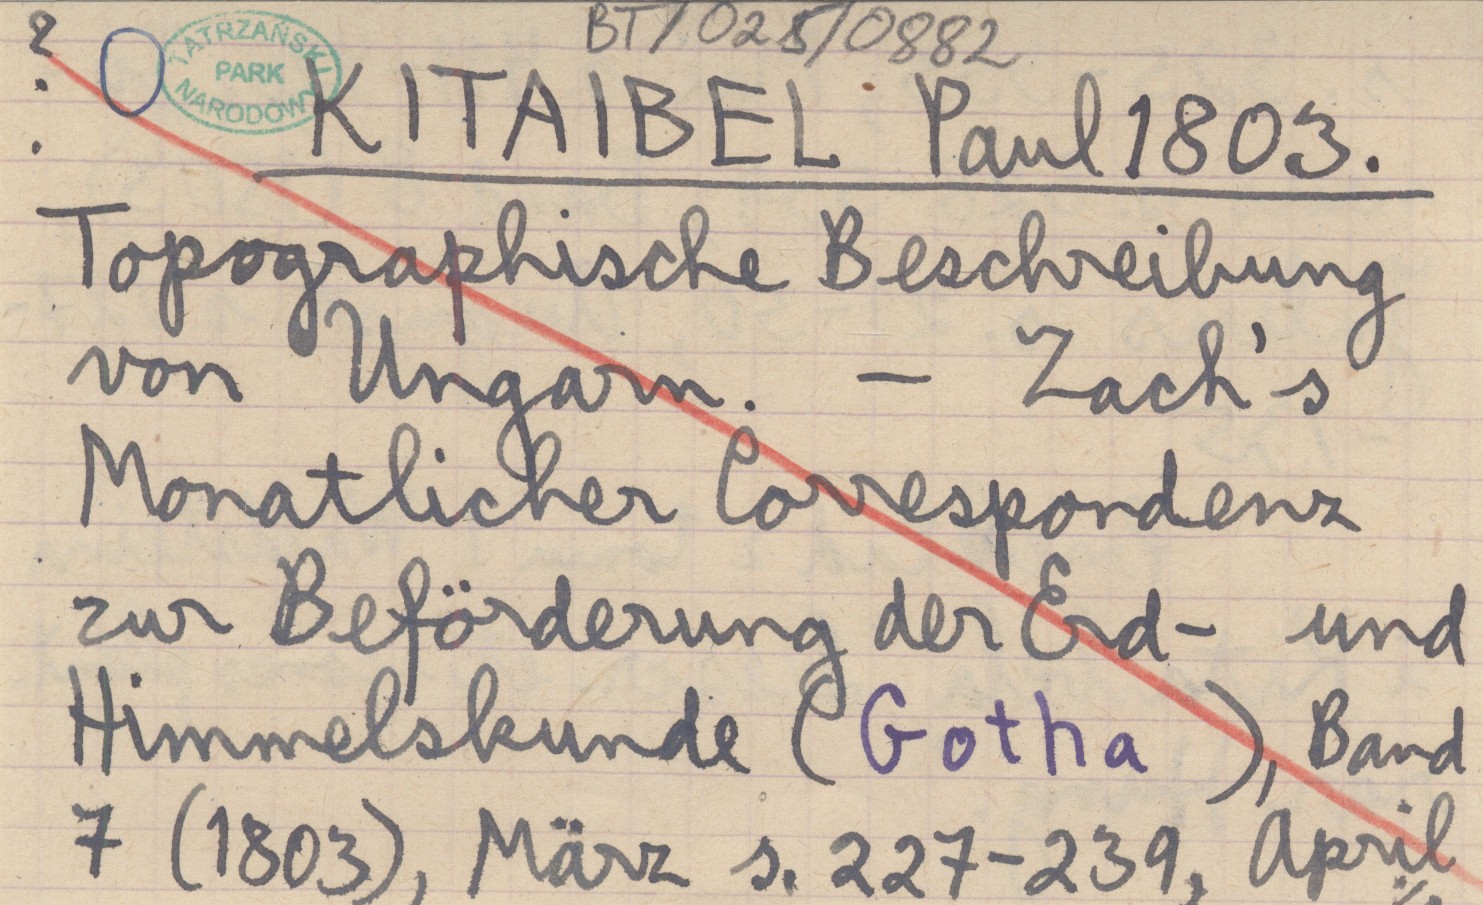 ?
TATRZAŃSKI
PARK
NARODOWY
BT/025/0882
KITAIBEL Paul 1803.
Topographische Beschreibung
von Ungarn. — Zach's
Monatlicher Correspondenz
zur Beförderung der Erd- und
Himmelskunde (Gotha), Band
7 (1803), März s. 227-239, April